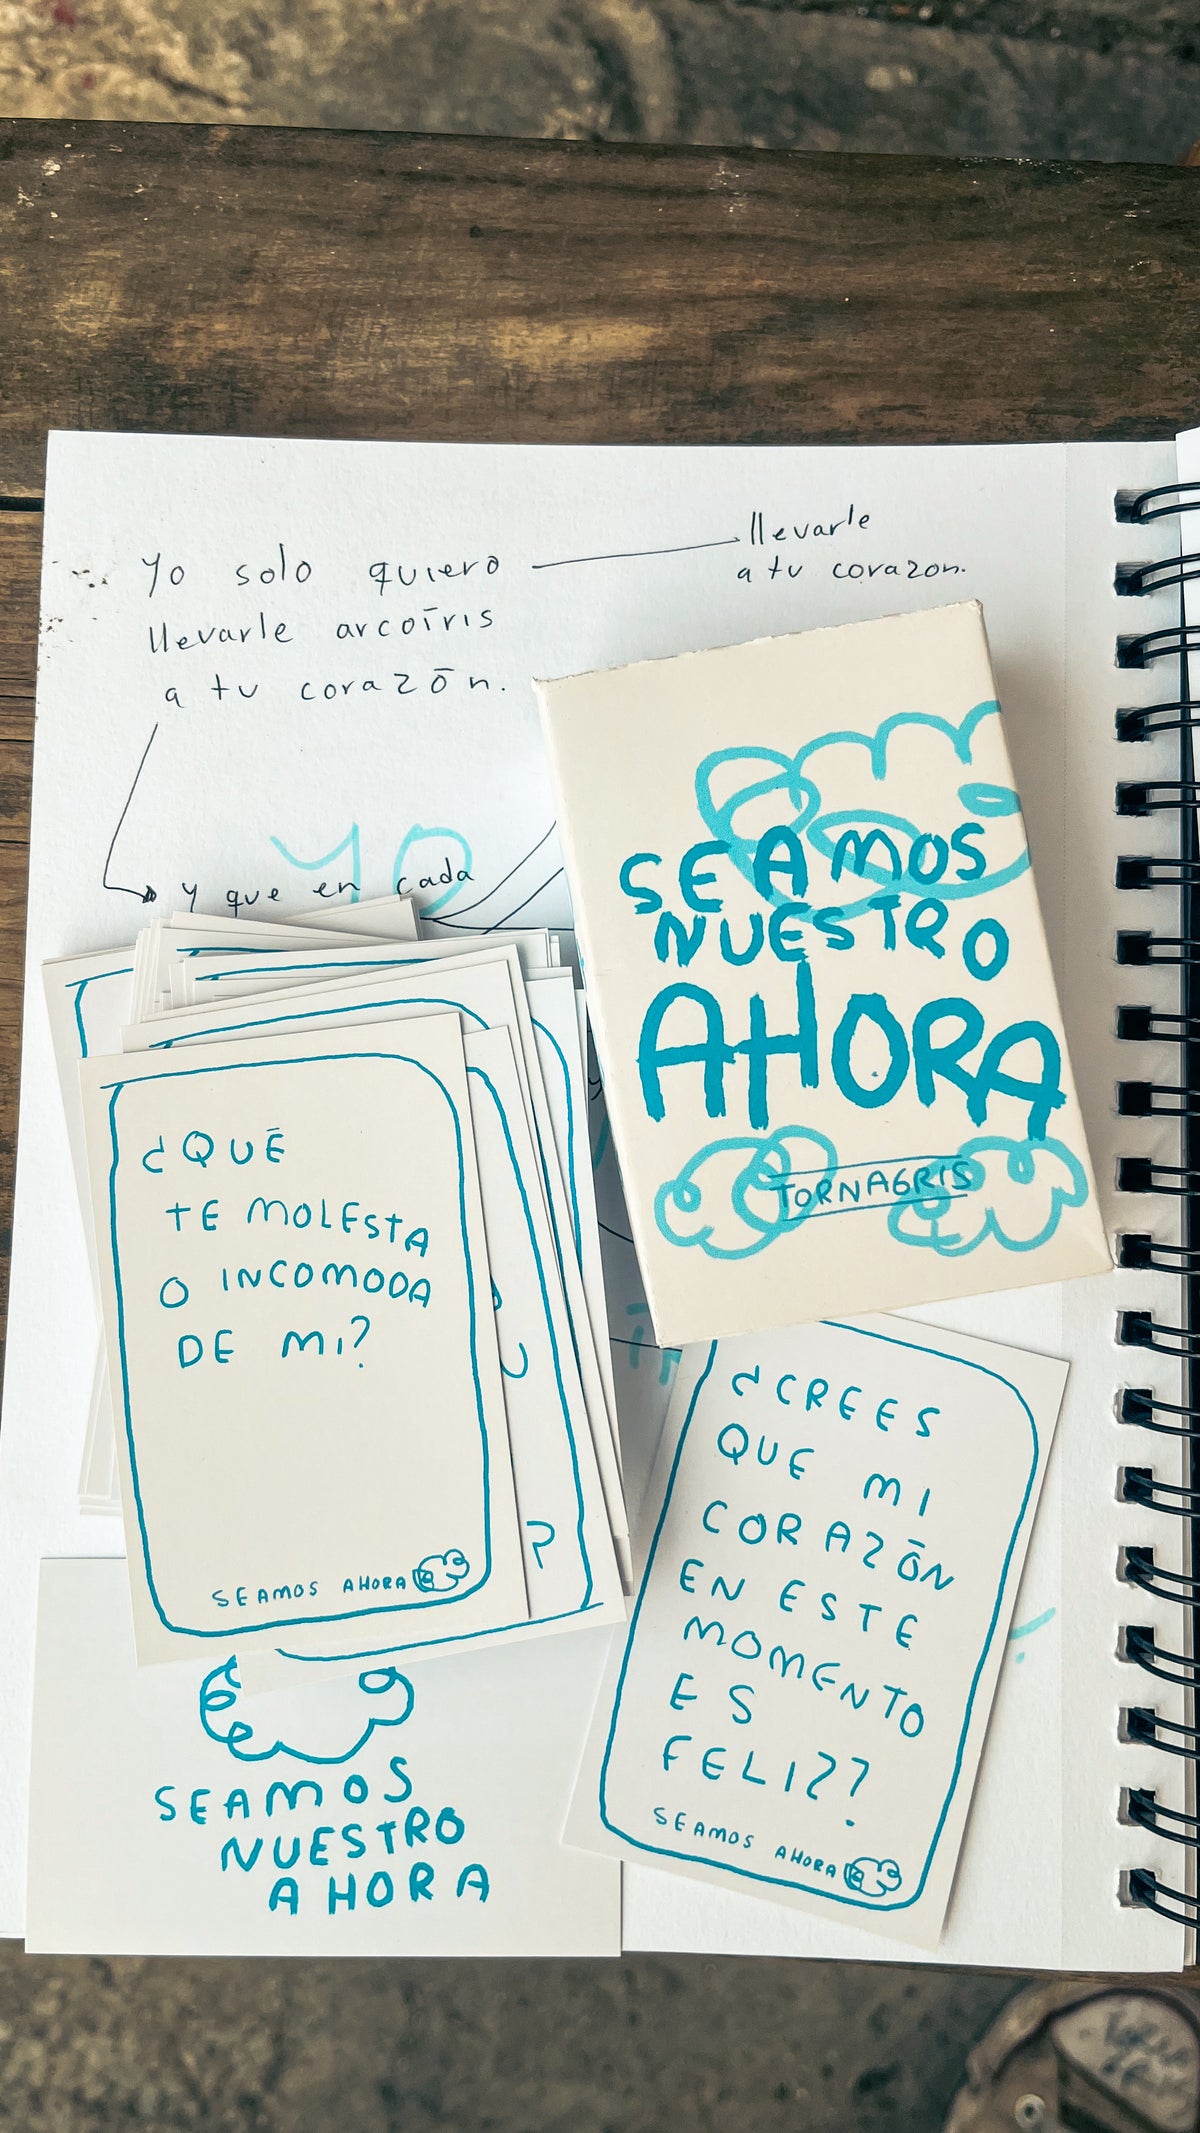 Yo solo quiero
llevarle arcoīris
a tu corazōn.
llevarle
a tu corazon.
YO
y que en cada
SEAMOS
NUESTRO
AHORA
TORNAGRIS
¿QUĒ
TE MOLESTA
O INCOMODA
DE MI?
SEAMOS AHORA
?
¿CREES
QUE MI
CORAZŌN
EN ESTE
MOMENTO
ES
FELIZ?
SEAMOS AHORA
SEAMOS
NUESTRO
AHORA